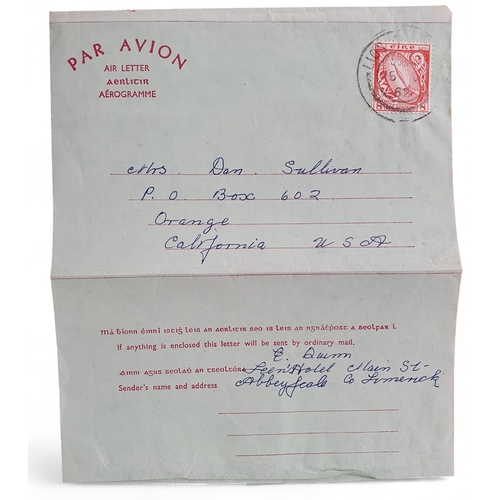 PAR AVION
AIR LETTER
aerlitir
AÉROGRAMME
éire
Mrs Dan Sullivan
P. O Box 602
Orange
California U S A
má bíonn éinní istiġ leis an aerlitir seo is leis an ngnáṫpost a seolfar í.
If anything is enclosed this letter will be sent by ordinary mail.
E. Quinn
ainm agus seolaḋ an tseoltóra
Leen Hotel Main St-
Sender's name and address
Abbeyfeale Co Limerick